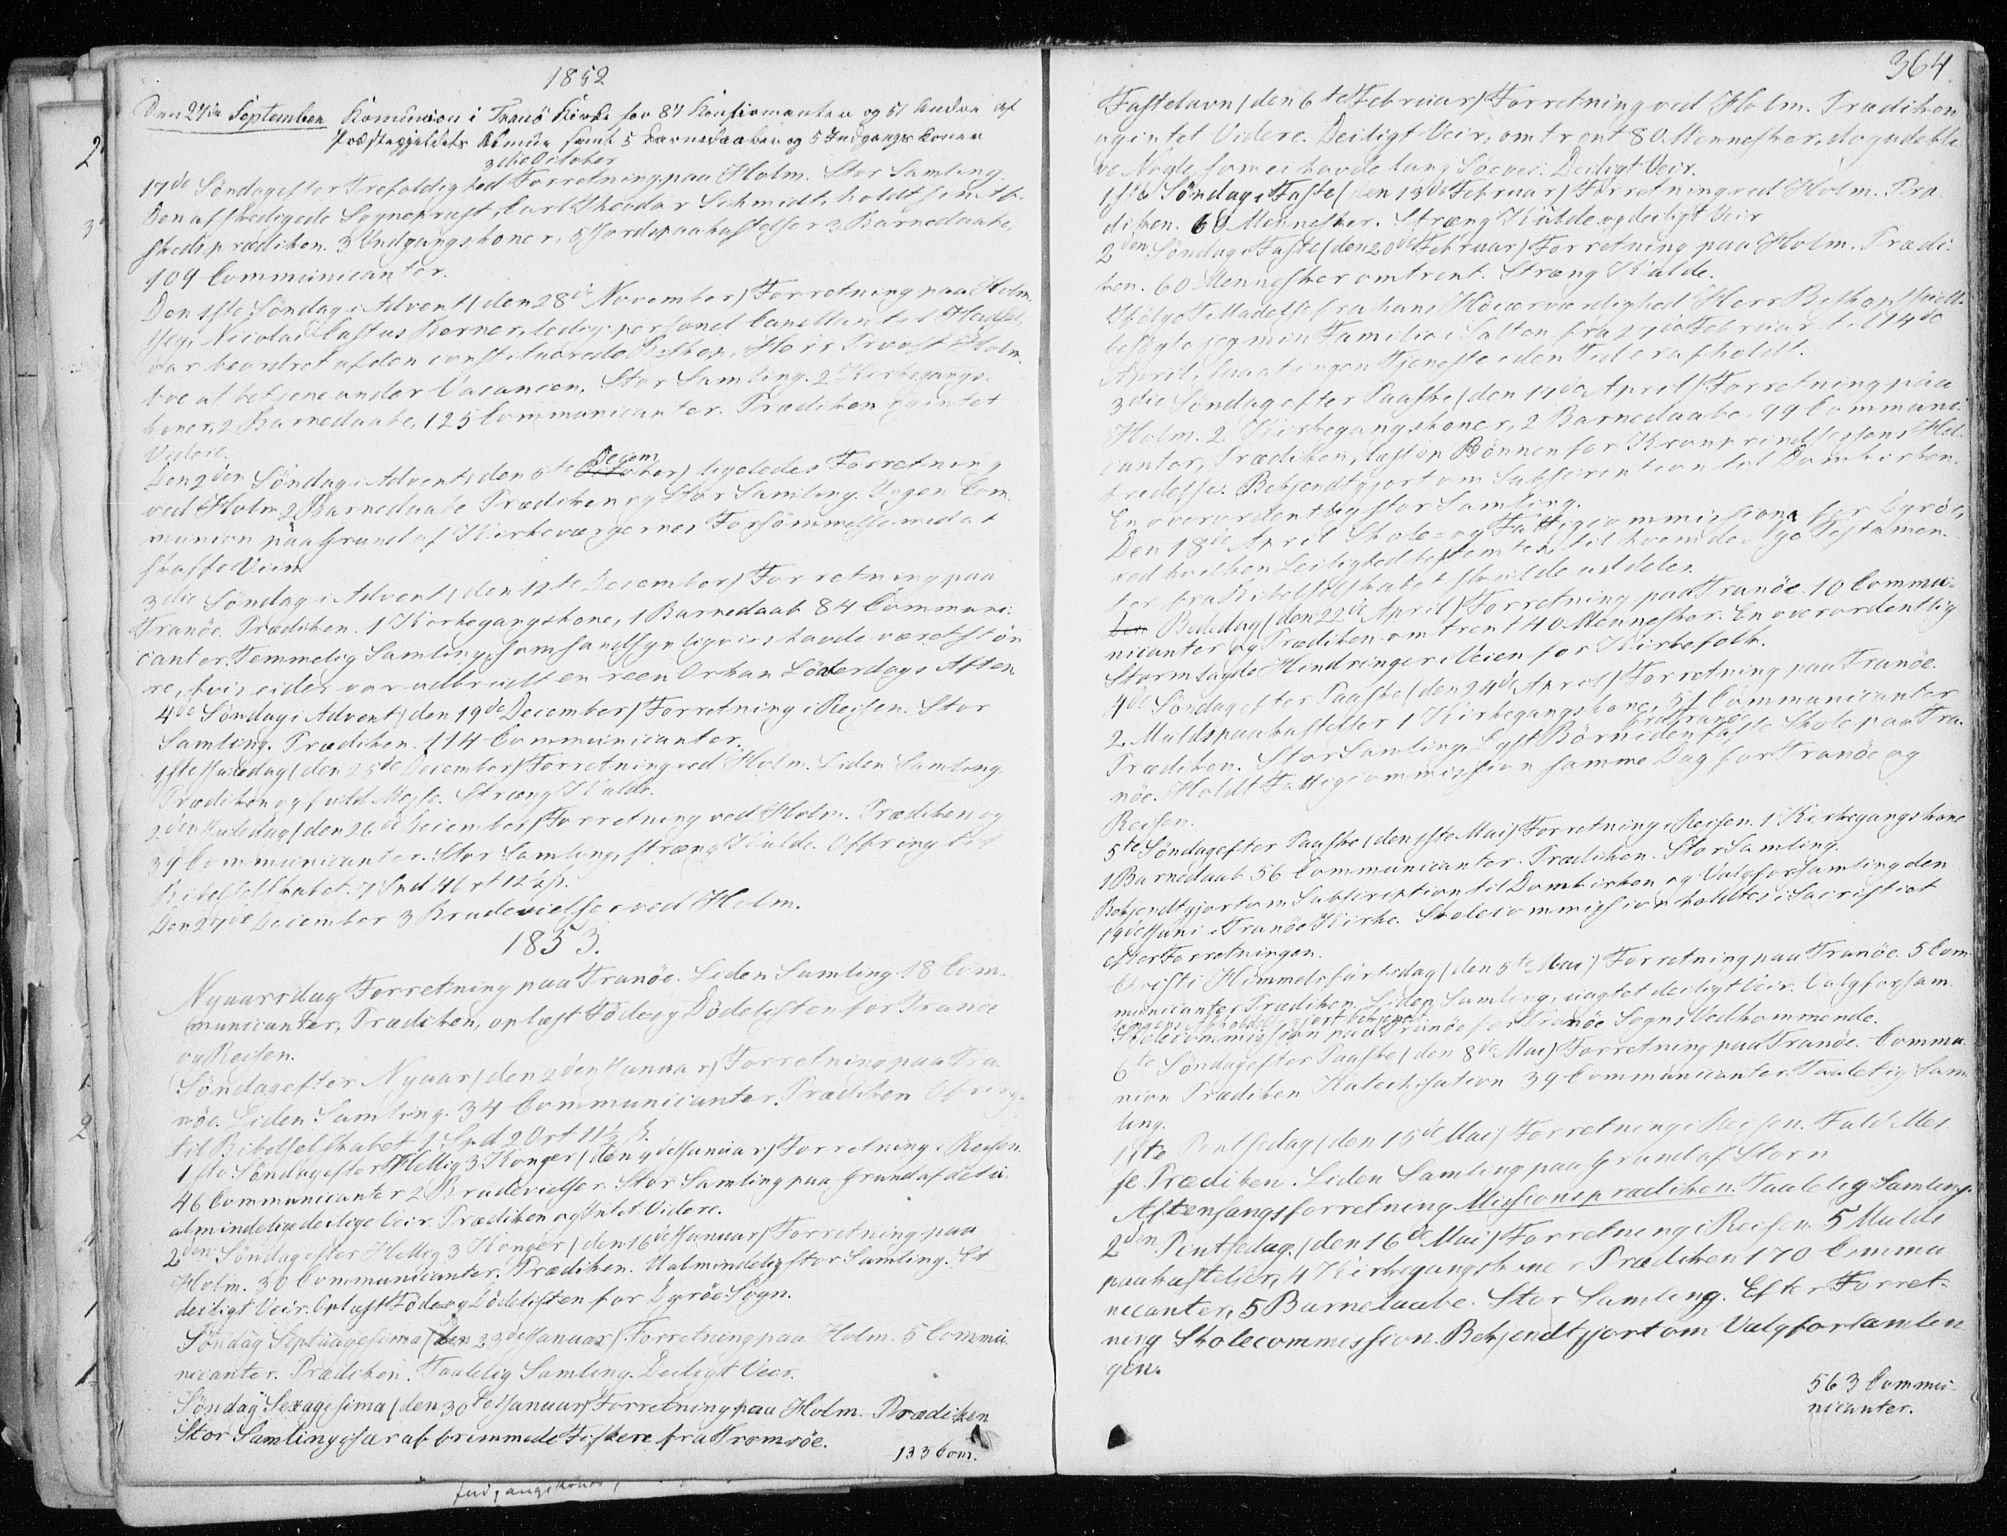 1852
Den 27de September Komunion i Tranö Kirke for 87 Konfirmanter og 51 Andre af
Præstegjeldets Almue samt 5 Barnedaaber og 5 Indgangskoner
3die October
17de Söndag efter Trefoldighed Forretning paa Holm. Stor Samling.
Den afskedigede Sogneprest, Carl Theodor Schmidt, holdt sin Af-
skedsprædiken. 3 Indgangskoner, 5 Jordspaakastelser 3 Barnedaabe,
109 Communicanter.
Den 1ste Söndag i Advent (den 28de November) Forretning paa Holm.
Jeg, Nicolai Castus Berner, ledig personel Capellan til Hadsel,
var beordret af den constituerede Biskop, Herr Provst Holm-
boe at betjene under Vacancen. Stor Samling. 2 Kirkegangs-
koner, 2 Barnedaabe, 125 Communicanter. Prædiken og intet
Videre.
Den 2den Söndag i Advent (den 5te Decem October) ligeledes Forretning
ved Holm 2 Barnedaabe Prædiken og Stor Samling. Ingen Com-
munion paa Grund af Kirkeværgernes Forsömmelse med at
skaffe Viin.
3die Söndag i Advent (den 12te December) Forretning paa
Tranöe. Prædiken. 1 Kirkegangskone, 1 Barnedaab 84 Communi-
canter. Temmelig Samling, som sandsynligviis havde været stör-
re, hvis ei der var udbrudt en reen Orkan Löverdags Aften.
4de Söndag i Advent (den 19de December) Forretning i Reisen. Stor
Samling. Prædiken. 114 Communicanter.
1ste Juledag (den 25de December) Forretning ved Holm. Liden Samling.
Prædiken og fuld Messe. Stræng Kulde.
2den Juledag (den 26de December) Forretning ved Holm. Prædiken og
39 Communicanter. Stor Samling, stræng Kulde. Offring til
Bibelselskabet. 7 Spd 4 Ort 12½ ß.
Den 27de December 3 Brudevielser ved Holm.
1853.
Nyaarsdag Forretning paa Tranöe. Liden Samling. 18 Com-
municanter, Prædiken, oplæst Föde og Dödelisten for Tranöe
og Reisen.
Söndag efter Nyaar (den 2den Januar) Forretning paa Tra-
nöe. Liden Samling. 34 Communicanter. Prædiken Ofring
til Bibelselskabet 1 Spd 2 Ort 11½ ß.
1ste Söndag efter Hellig 3 Konger (den 9de Januar) Forretning i Reisen.
46 Communicanter 2 Brudevielser. Stor Samling paa Grund af det u-
almindelige deilige Veir. Prædiken og Intet Videre.
2den Söndag efter Hellig 3 Konger (den 16de Januar) Forretning paa
Holm. 30 Communicanter. Prædiken. Ualmindelig stor Samling. Et
deiligt Veir. Oplæst Föde og Dödelisten for Dyröe Sogn.
Söndag Septuagesima (den 23de Januar) Forretning paa Holm. 5 Commu-
nicanter. Prædiken. Taalelig Samling. Deiligt Veir.
Söndag Sexagesima (den 30te Januar) Forretning paa Holm. Prædiken
Stor Samling især af fremmede Fiskere fra Tromsöe.
133 Com.
364.
Fastelavn (den 6te Februar) Forretning ved Holm. Prædiken
og intet Videre. Deiligt Veir, omtrent 80 Mennesker, dog udeble-
ve Nogle som ei havde lang Soevei. Deiligt Veir.
1ste Söndag i Faste (den 13de Februar) Forretning ved Holm. Præ-
diken. 60 Mennesker. Stræng Kulde og deiligt Veir
2den Söndag i Faste (den 20de Februar) Forretning paa Holm. Prædi-
ken. 60 Mennesker omtrent. Stræng Kulde.
Ifölge Tilladelse fra hans Höiærværdighed Herr Biskop Juell
besögte jeg min Familie i Salten fra Februar til 14de
April, saa at ingen Tjeneste i den Tid er afholdt.
3die Söndag efter Paaske (den 17de April) Forretning paa
Holm. 2 Kirkegangskoner, 2 Barnedaabe. 99 Communi-
canter, Prædiken, læst op Bönnen for Kronprindsessens Hel-
bredelse. Bekjendtgjort om Subscription til Domkirken.
En overordentlig stor Samling.
Den 18de April Skole- og Fattigcommission for Dyröe,
ved hvilken Leilighed bestemtes, til hvem de Nye Testamen-
ter fra Bibelselskabet skulde uddeles.
Bededag (den 22de April) Forretning paa Tranöe. 10 Commu-
nicanter og Prædiken omtrent 40 Mennesker. En overordentlig
Storm lagde Hindringer i Veien for Kirkefolk.
4de Söndag efter Paaske (den 24de April) Forretning paa Tranöe.
2 Muldspaakastelser 1 Kirkegangskone, 51 Communicanter
Prædiken. Stor Samling. Lyst Börn i den faste Skole paa Tra-
nöe. Holdt Fattigcommission samme Dag for Tranöe og
Reisen.
5te Söndag efter Paaske (den 1ste Mai) Forretning i Reisen. 1 Kirkegangskone
1 Barnedaab 56 Communicanter. Prædiken. Stor Samling.
Bekjendtgjort om Subscription til Domkirken og Valgforsamling den
19de Juni i Tranöe Kirke. Skolecommission holdtes i Sacristiet
efter Forretningen.
Christi Himmelsfartsdag (den 5te Mai) Forretning paa Tranöe. 5 Com-
municanter Prædiken. Liden Samling, uagtet deiligt Veir. Valgforsam-
lingens Afholdelse gjort bekjendt.
Skolecommission paa Tranöe for Tranöe Sogns Vedkommende.
6te Söndag efter Paaske (den 8de Mai) Forretning paa Tranöe. Commu-
nion Prædiken Katechisation 39 Communicanter. Taalelig Sam-
ling.
1ste Pintsedag (den 15de Mai) Forretning i Reisen. Fuld Mes-
se. Prædiken. Liden Samling paa Grund af Storm
Aftensangsforretning Missionsprædiken. Taalelig Samling.
2den Pintsedag (den 16de Mai) Forretning i Reisen. 5 Mulds-
paakastelser, 4 Kirkegangskoner Prædiken 170 Commu-
nicanter, 5 Barnedaabe. Stor Samling. Efter Forret-
ning Skolecommission. Bekjendtgjort om Valgforsamlin-
gen.
563 Commu-
nicanter.
Indgangskoner,